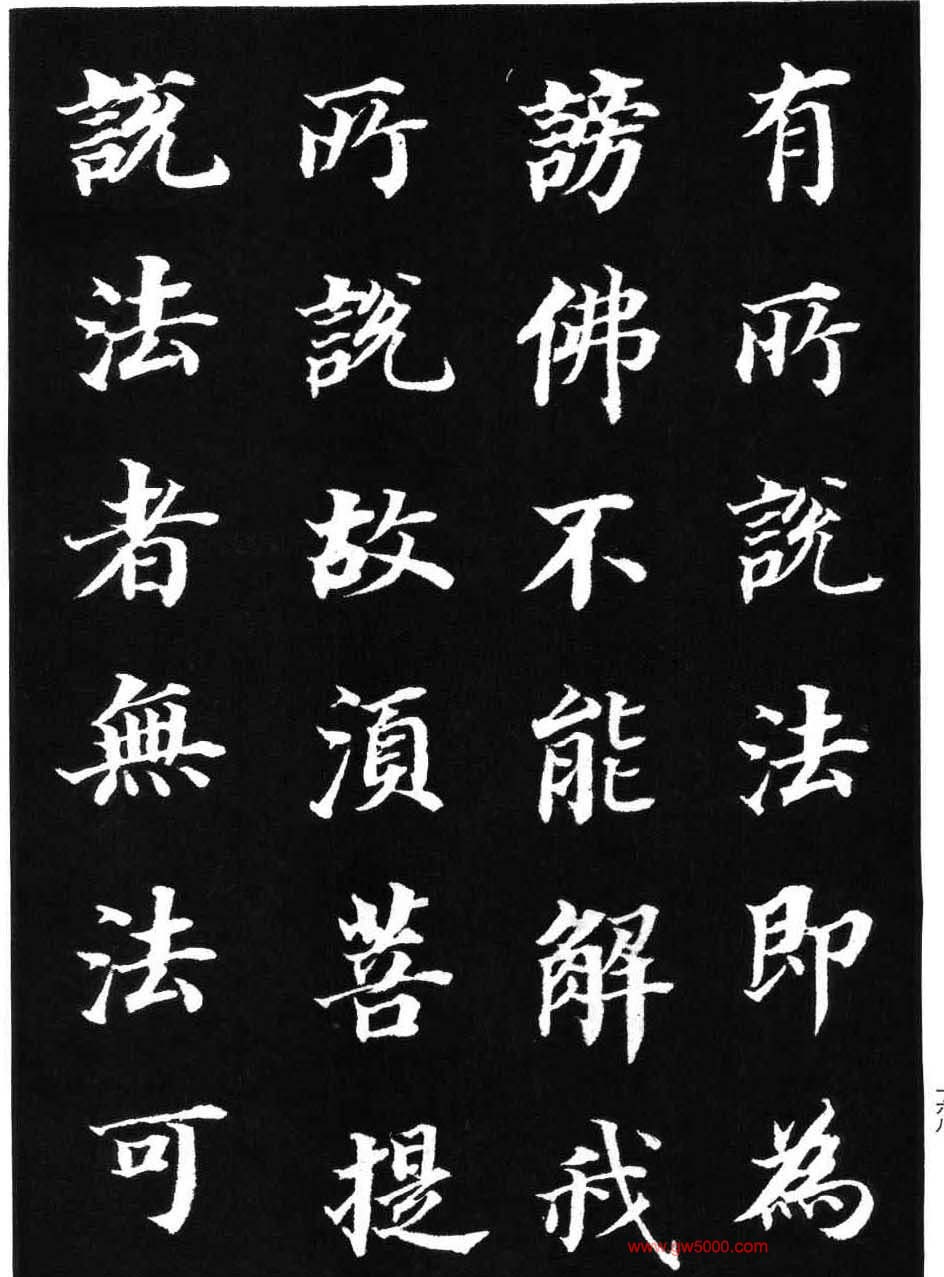 有所說法即為
謗佛不能解我
所說故須菩提
說法者無法可
一六八
www.gw5000.com